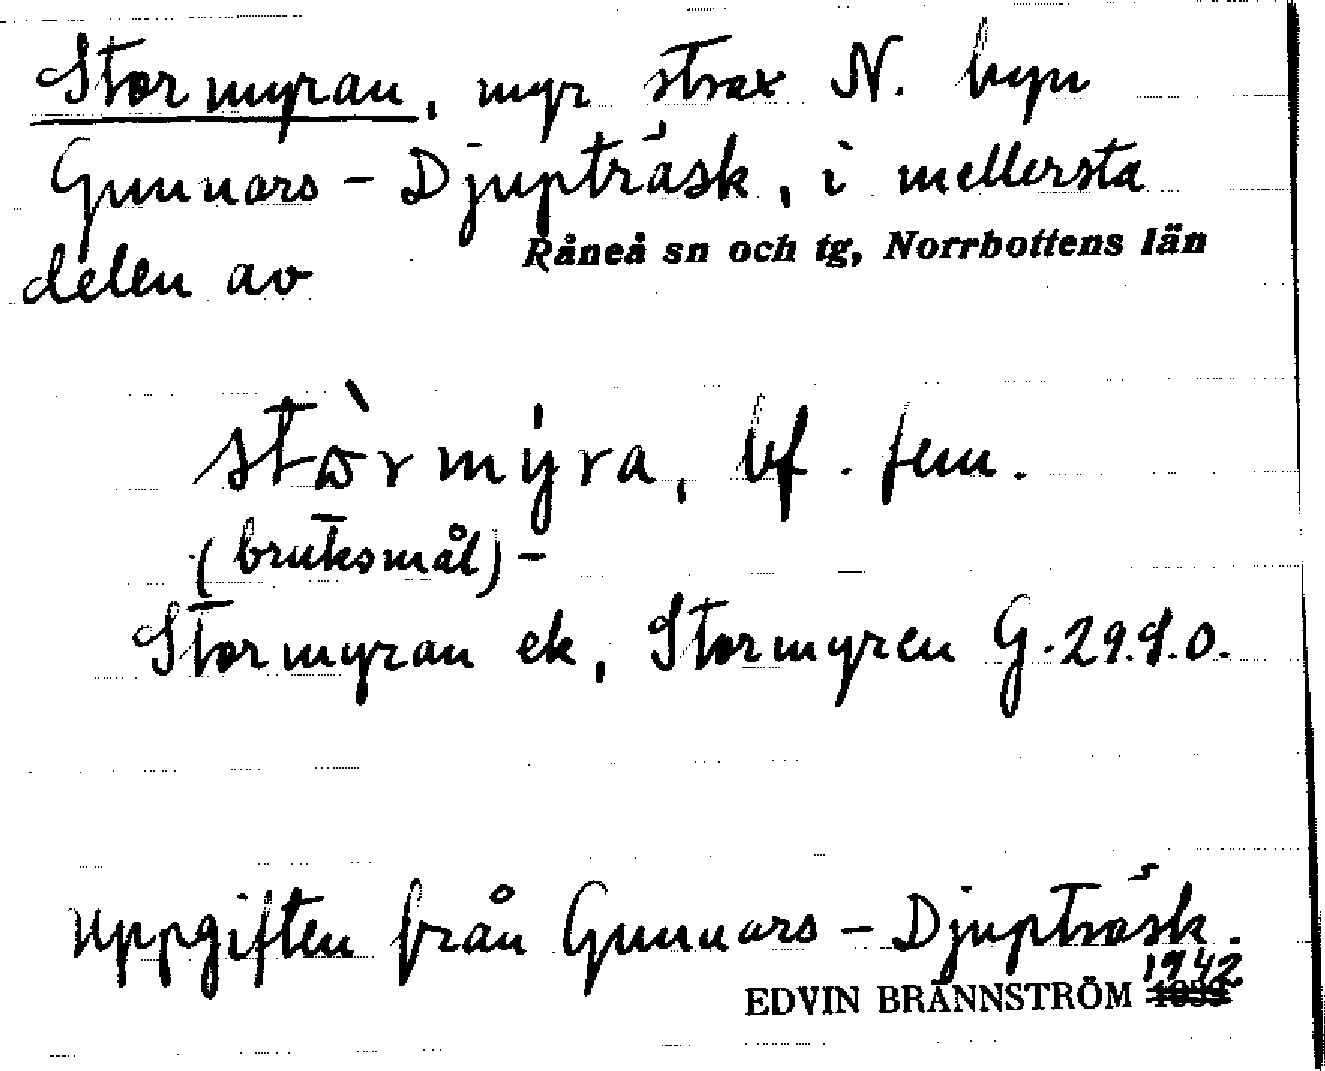 Stormyran, myr strax N. byn
Gunnars-Djupträsk, i mellersta
delen av Råneå sn och tg, Norrbottens län
stòrmýra, bf. fem.
(bruksmål) -
Stormyran ek, Stormyren G.29.d.o.
uppgiften från Gunnars-Djupträsk.
EDVIN BRÄNNSTRÖM 1942